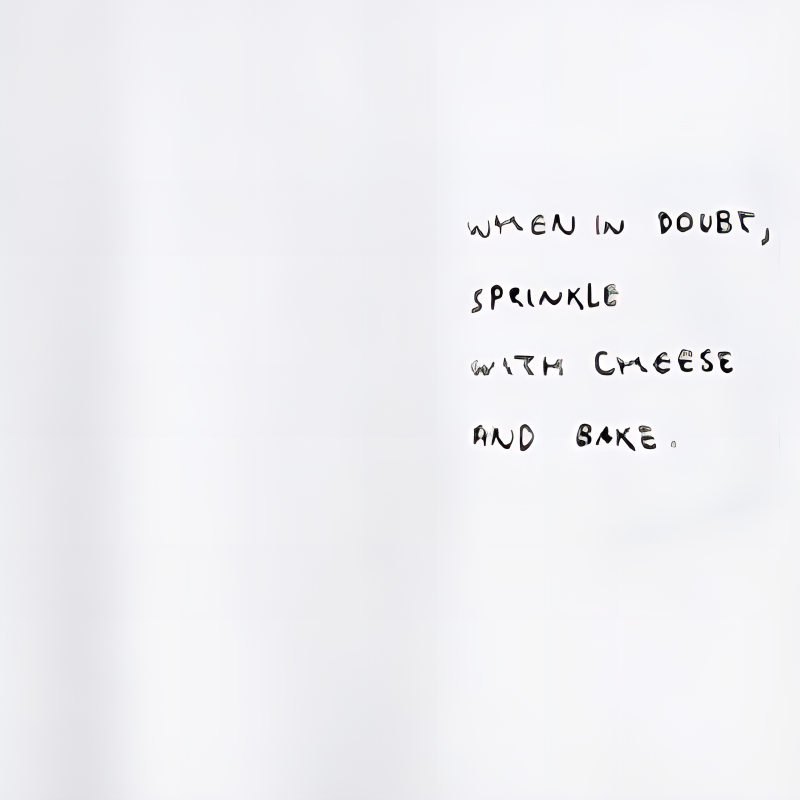 WHEN IN DOUBT,
SPRINKLE
WITH CHEESE
AND BAKE.